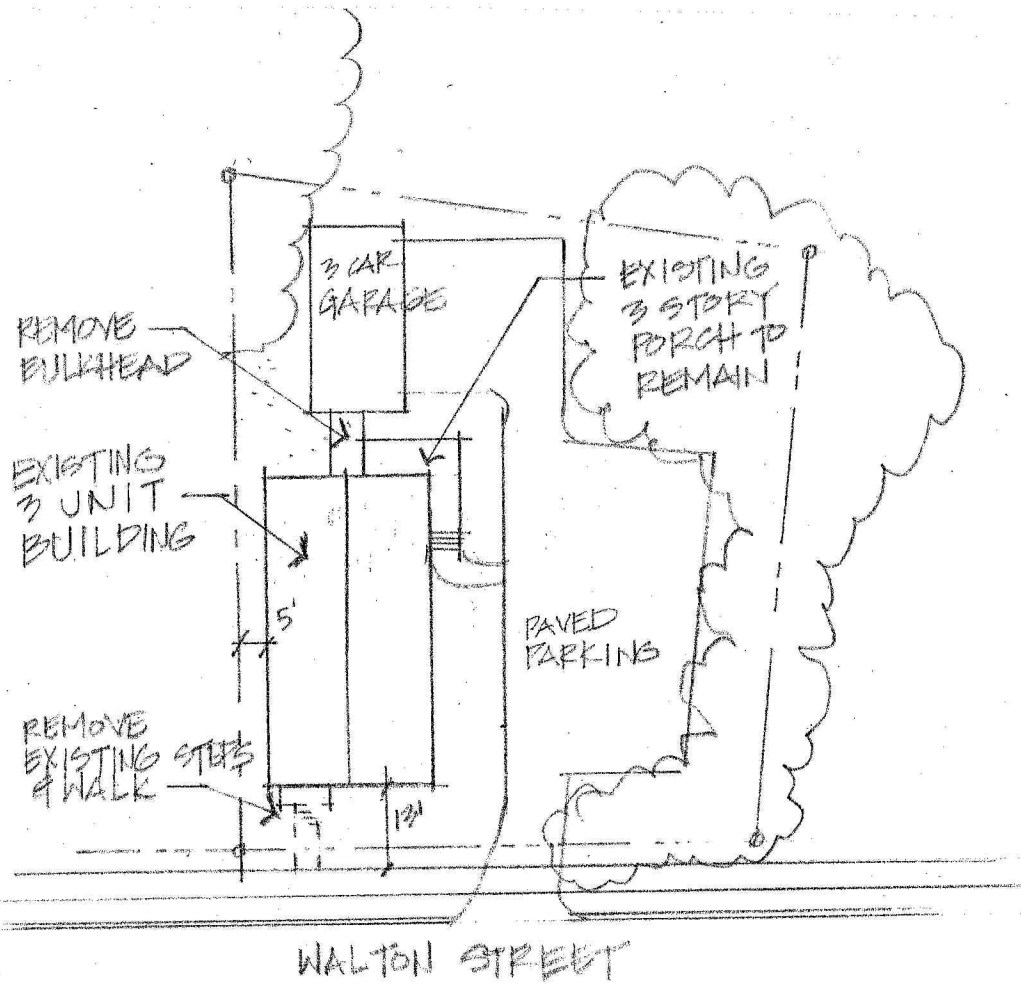 3 CAR
GARAGE
EXISTING
3 STORY
PORCH TO
REMAIN
REMOVE
BULKHEAD
EXISTING
3 UNIT
BUILDING
5'
PAVED
PARKING
REMOVE
EXISTING STEPS
& WALK
13'
WALTON STREET